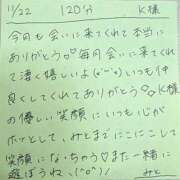 11/22 120分 K様
今月も会いに来てくれて本当に
ありがとう♡毎月会いに来てくれ
て凄く嬉しいよ(*´▽`*)いつも仲
良くしてくれてありがとう♡K様
の優しい笑顔にいつも心が
ホッとして、みとまでにこにこして
笑顔になっちゃう♡また一緒に
遊ぼうね、(^o^)/
みと